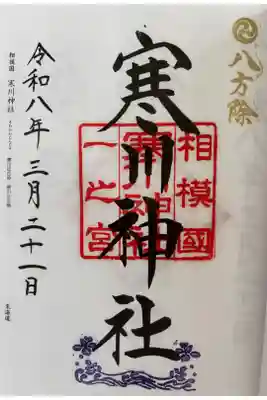 八方除
寒川神社
相模國
寒川神社
一之宮
令和八年三月二十一日
相模國 寒川神社